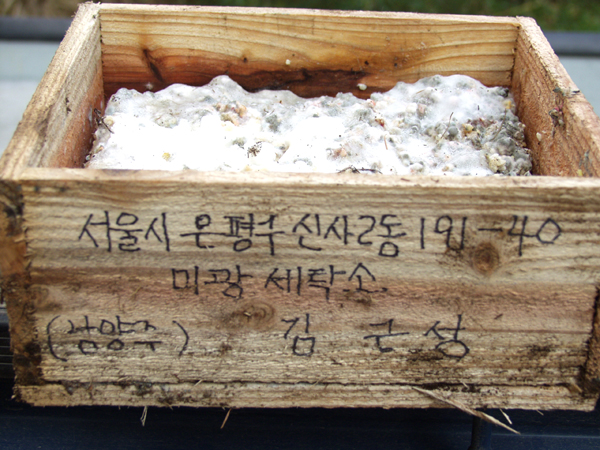 서울시 은평구 신사2동 191-40
미광 세탁소.
(남양주) 김근성